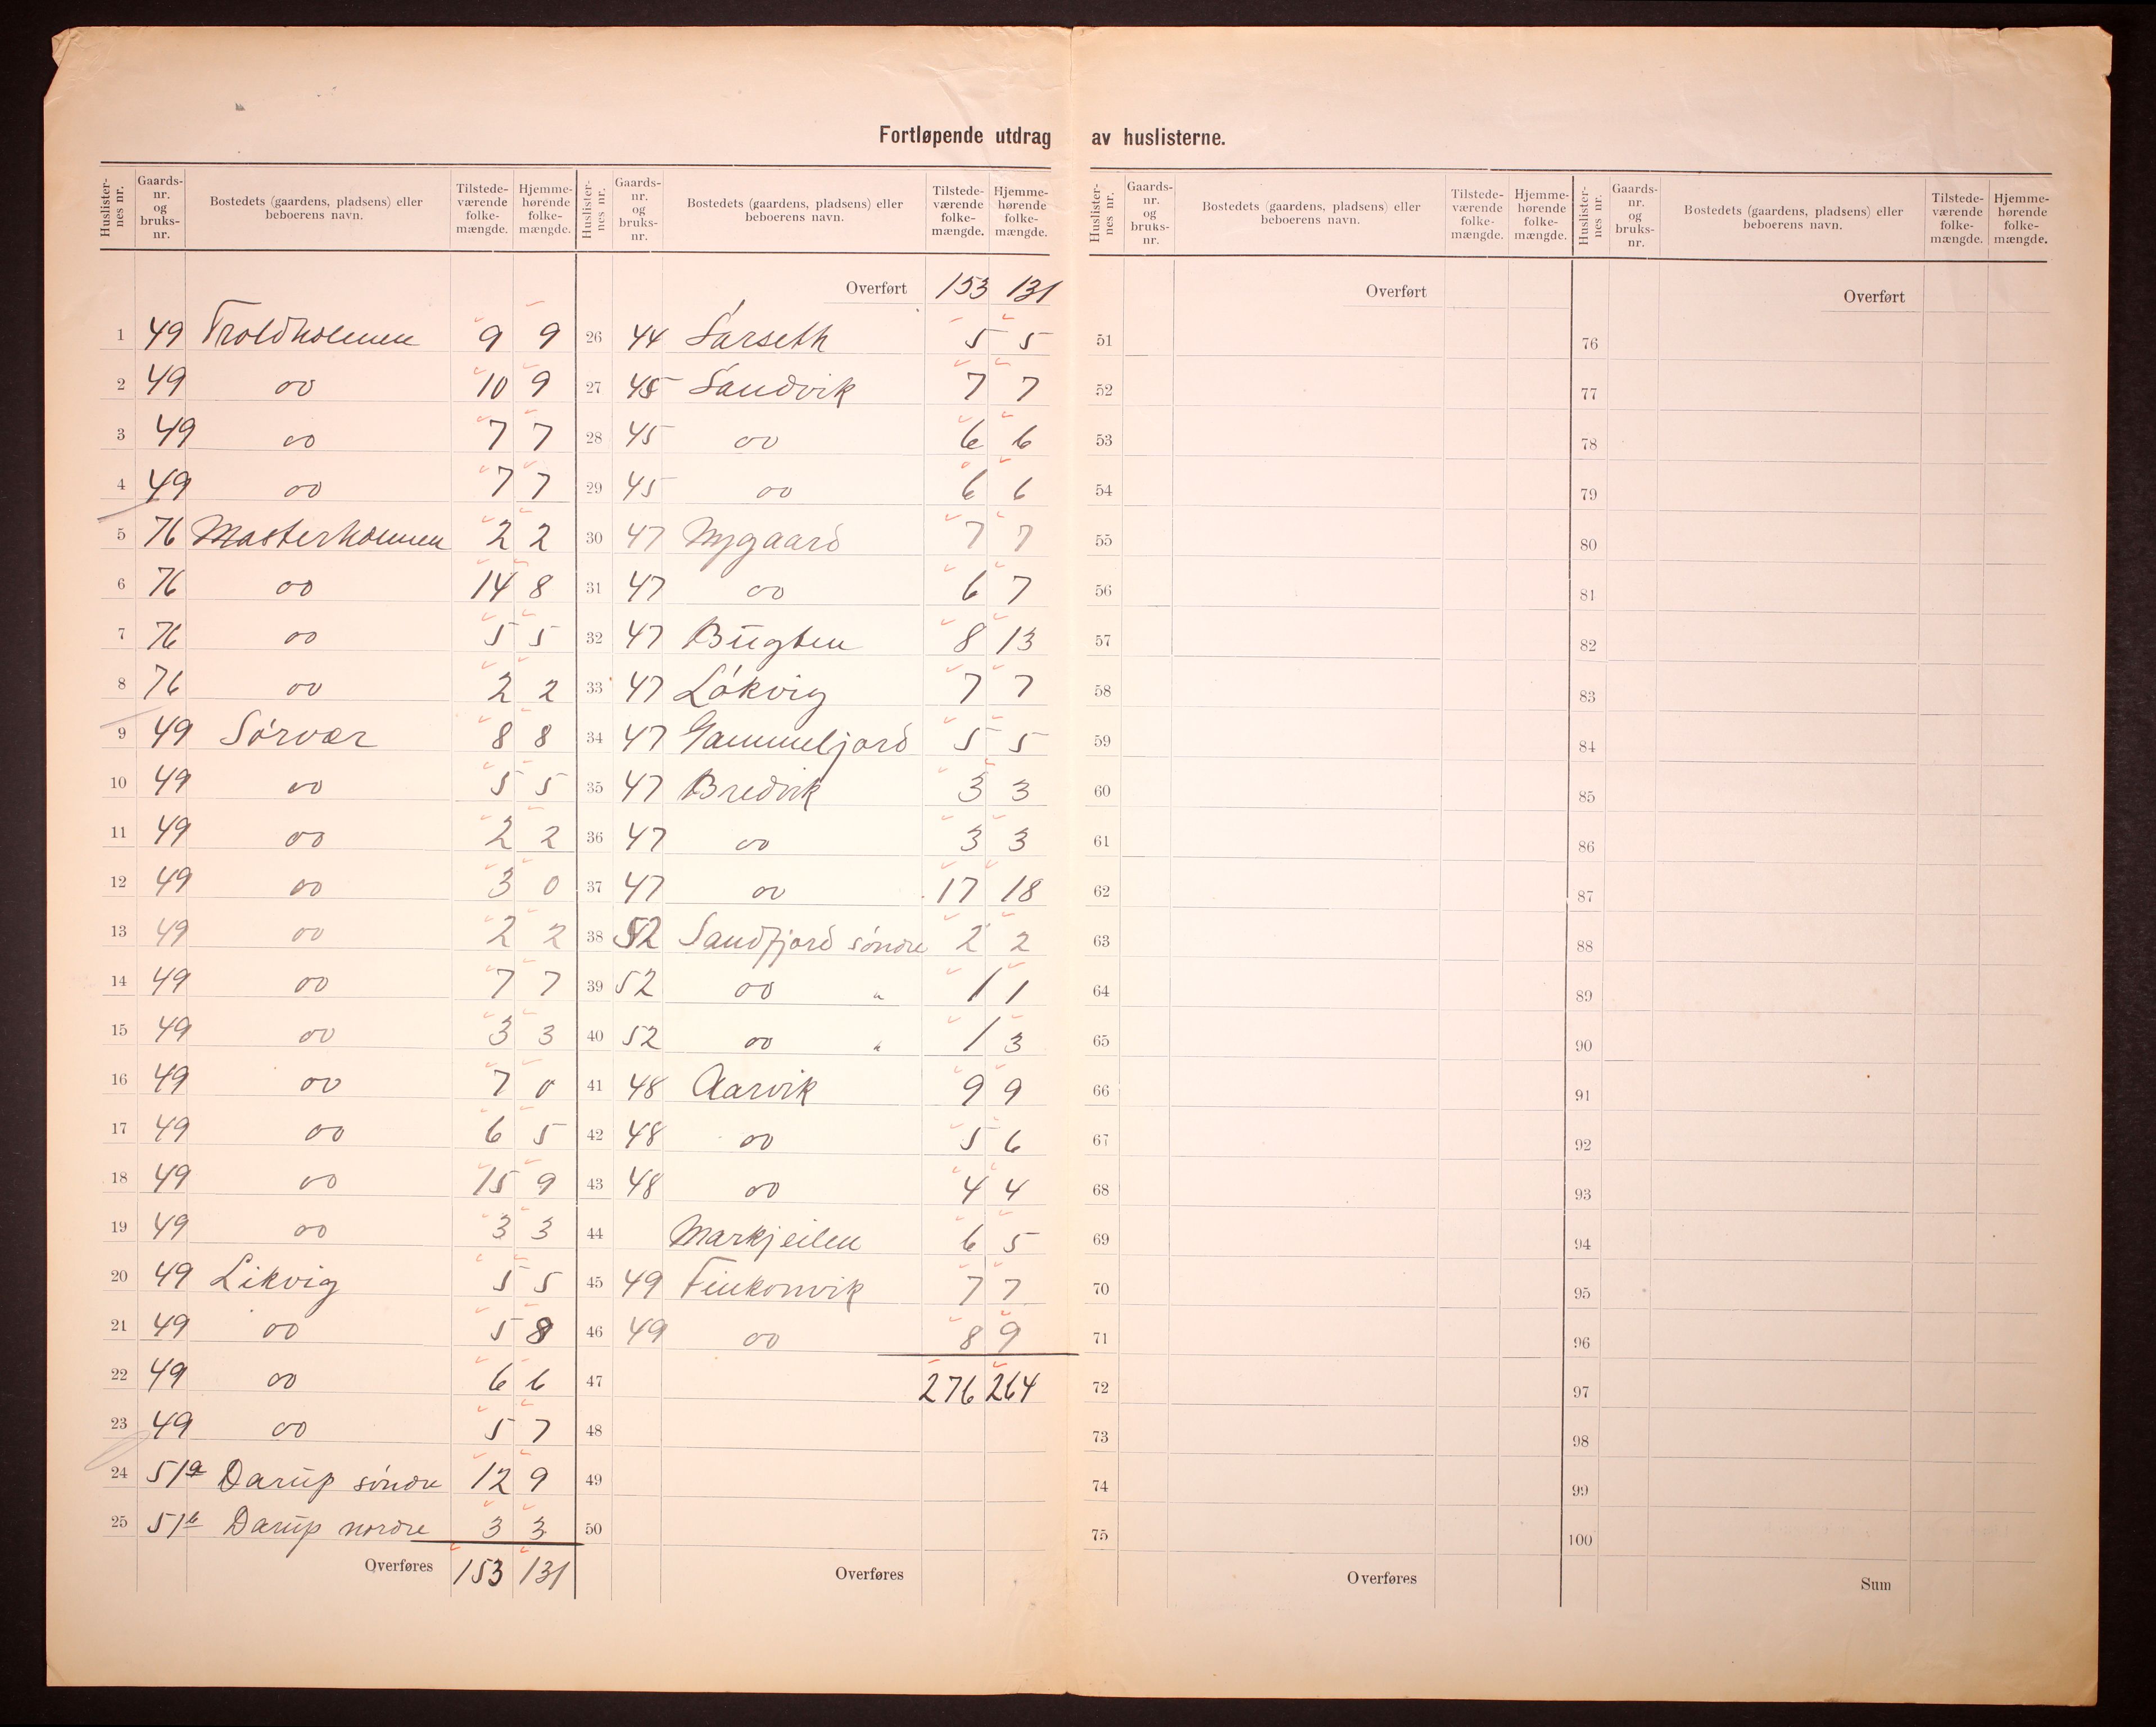 Fortløpende utdrag av huslisterne.
Huslister-nes nr. Gaards-nr. og bruks-nr. Bostedets (gaardens, pladsens) eller beboerens navn. Tilstede-værende folke-mængde. Hjemme-hørende folke-mængde.
1 49 Troldholmen 9 9
2 49 do 10 9
3 49 do 7 7
4 49 do 7 7
5 76 Masterholmen 2 2
6 76 do 14 8
7 76 do 5 5
8 76 do 2 2
9 49 Sórvær 8 8
10 49 do 5 5
11 49 do 2 2
12 49 do 3 0
13 49 do 2 2
14 49 do 7 7
15 49 do 3 3
16 49 do 7 0
17 49 do 6 5
18 49 do 15 9
19 49 do 3 3
20 49 Likvig 5 5
21 49 do 5 8
22 49 do 6 6
23 49 do 5 7
24 51a Darup sóndre 12 9
25 51b Darup nordre 3 3
Overføres 153 131
Huslister-nes nr. Gaards-nr. og bruks-nr. Bostedets (gaardens, pladsens) eller beboerens navn. Tilstede-værende folke-mængde. Hjemme-hørende folke-mængde.
Overført 153 131
26 44 Sarseth 5 5
27 45 Sandvik 7 7
28 45 do 6 6
29 45 do 6 6
30 47 Nygaard 7 7
31 47 do 6 7
32 47 Bugten 8 13
33 47 Lókvig 7 7
34 47 Gammelfjord 5 5
35 47 Bredvik 3 3
36 47 do 3 3
37 47 do 17 18
38 52 Sandfjord sóndre 2 2
39 52 do " 1 1
40 52 do " 1 3
41 48 Aarvik 9 9
42 48 do 5 6
43 48 do 4 4
44 Markjeilen 6 5
45 49 Finkonvik 7 7
46 49 do 8 9
47 276 264
48
49
50
Overføres
Huslister-nes nr. Gaards-nr. og bruks-nr. Bostedets (gaardens, pladsens) eller beboerens navn. Tilstede-værende folke-mængde. Hjemme-hørende folke-mængde.
Overført
51
52
53
54
55
56
57
58
59
60
61
62
63
64
65
66
67
68
69
70
71
72
73
74
75
Overføres
Huslister-nes nr. Gaards-nr. og bruks-nr. Bostedets (gaardens, pladsens) eller beboerens navn. Tilstede-værende folke-mængde. Hjemme-hørende folke-mængde.
Overført
76
77
78
79
80
81
82
83
84
85
86
87
88
89
90
91
92
93
94
95
96
97
98
99
100
Sum